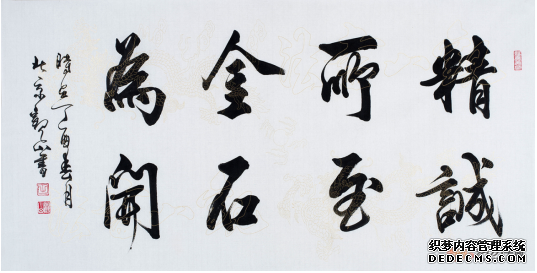 精誠
所至
金石
為開
時在丁酉春月
北京 山書
织梦内容管理系统
DEDECMS.COM